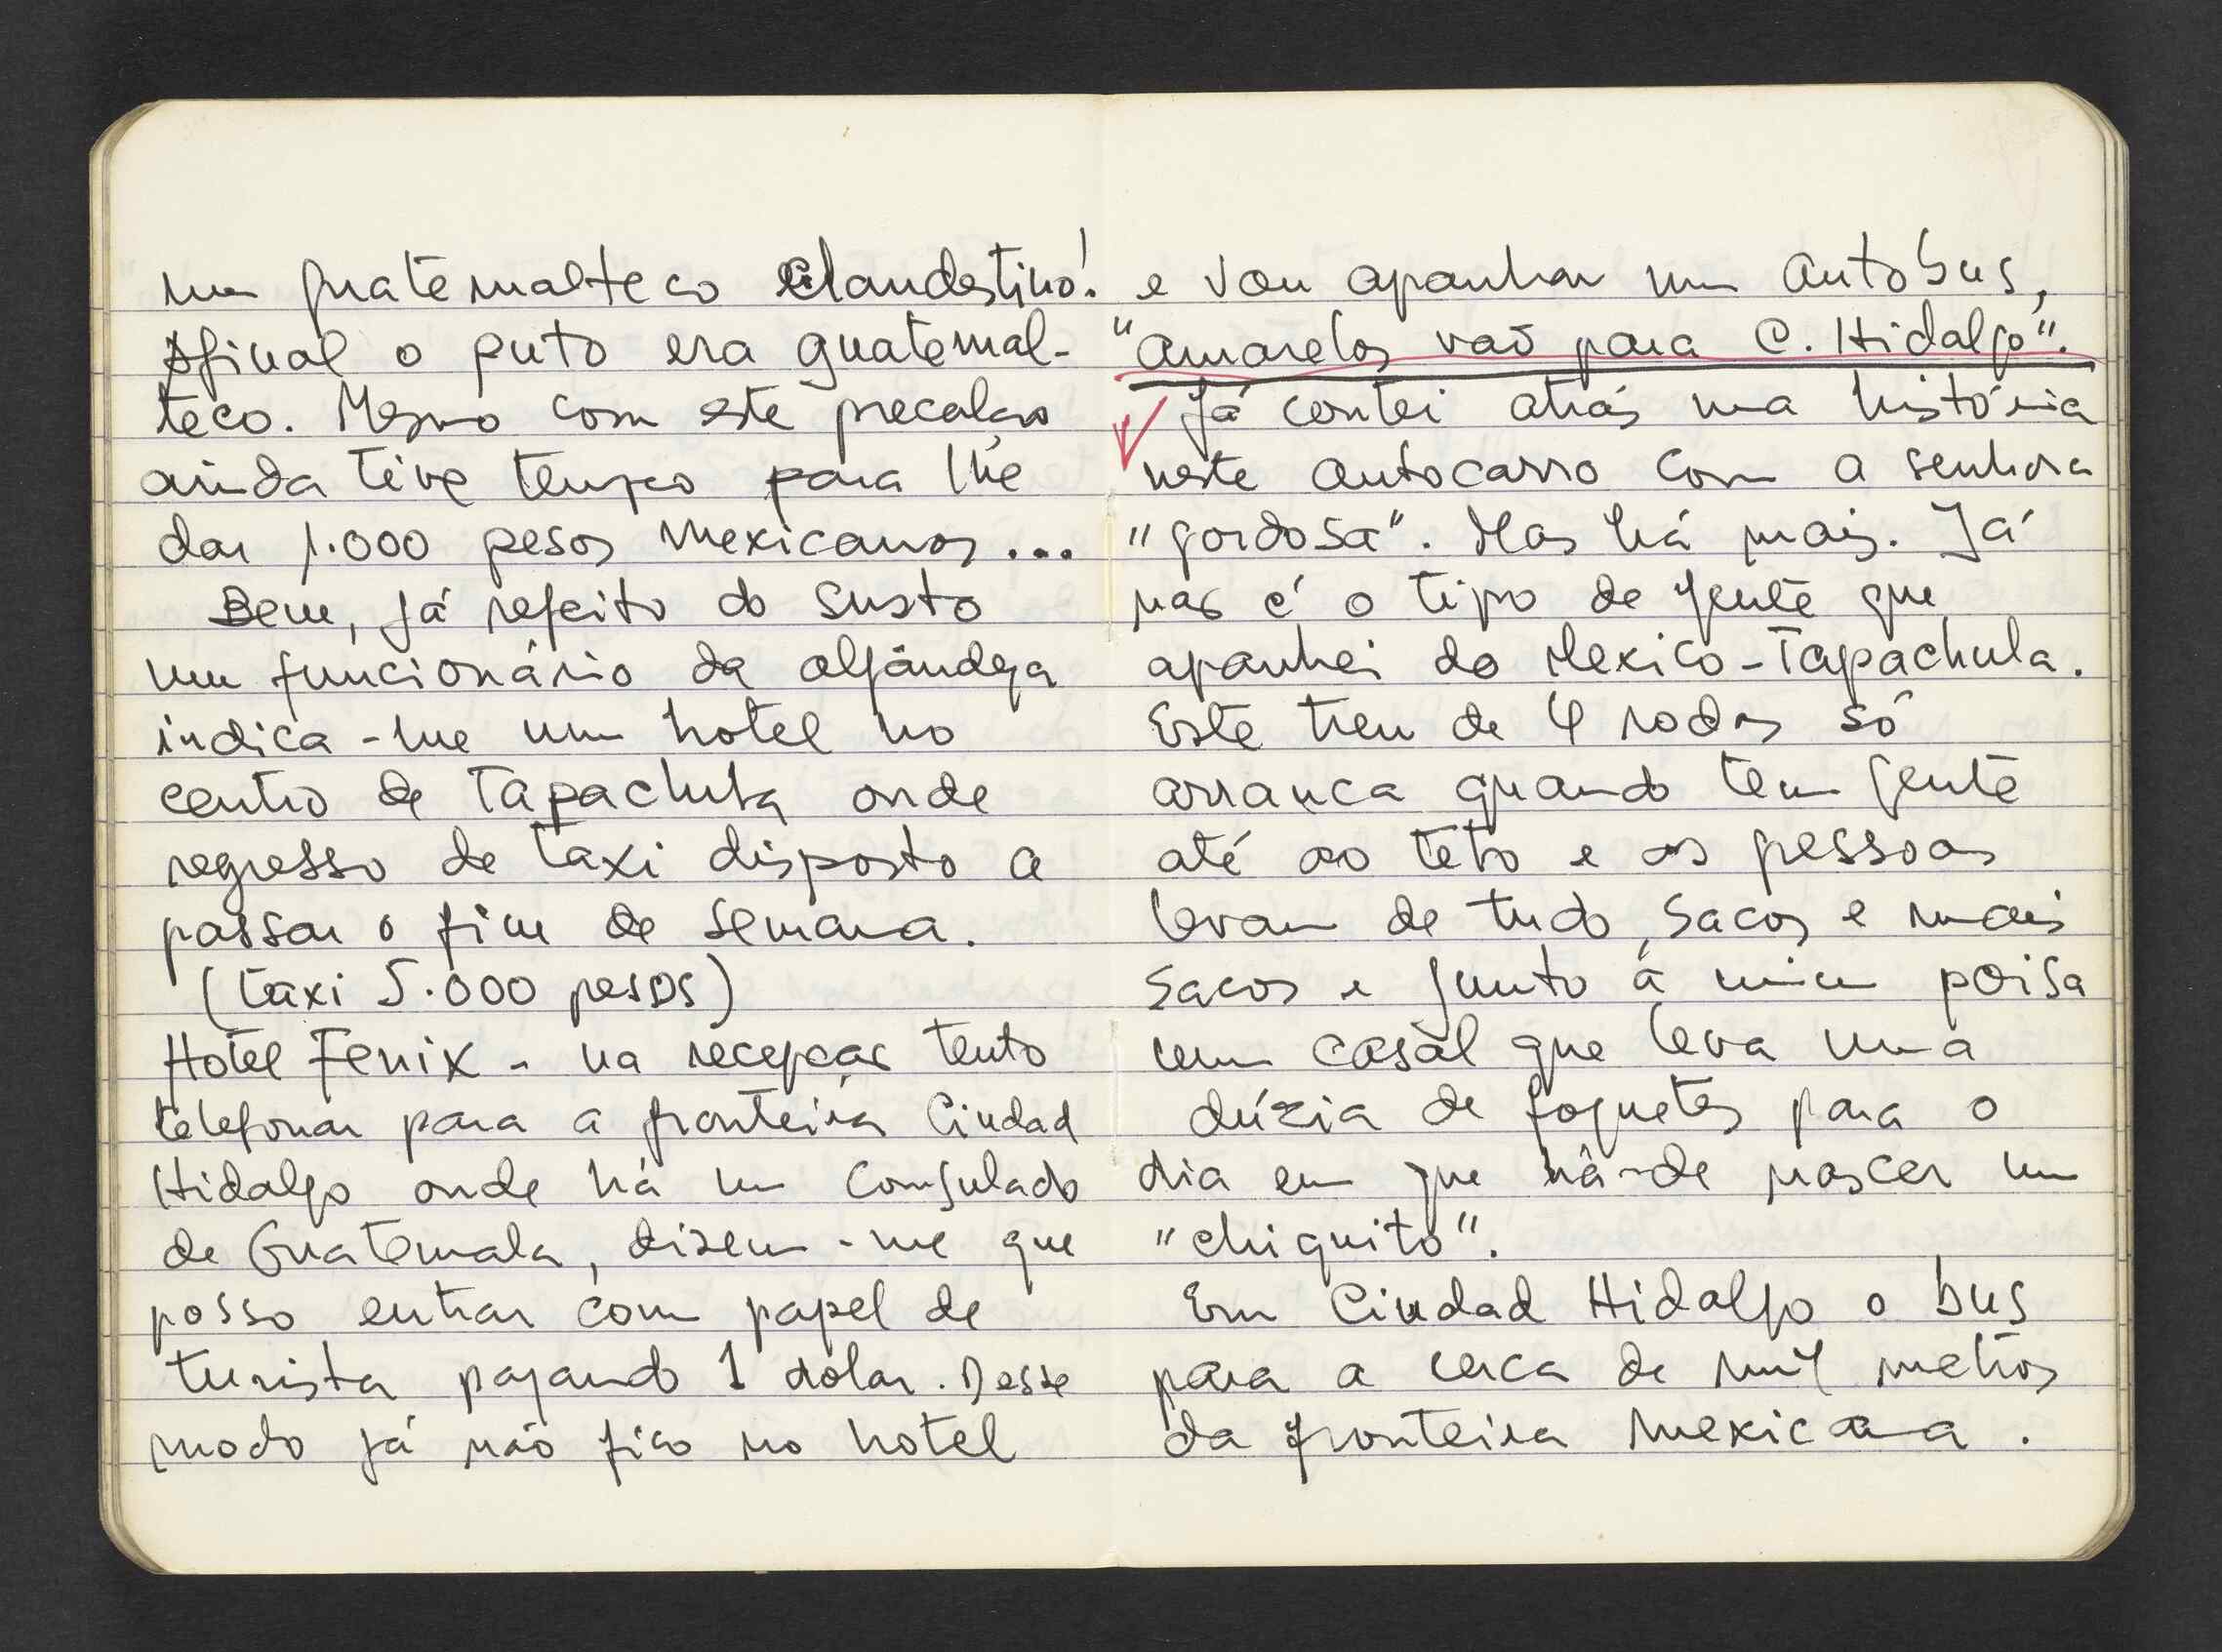 um guatemalteco clandestino!
Afinal o puto era guatemal-
teco. Mesmo com este precalço
ainda tive tempo para lhe
dar 1.000 pesos mexicanos...
Bem, já refeito do susto
um funcionário da alfândega
indica-me um hotel no
centro de Tapachula onde
regresso de taxi disposto a
passar o fim de semana.
(taxi 5.000 pesos)
Hotel Fenix - na recepção tento
telefonar para a fronteira Ciudad
Hidalgo onde há um Consulado
de Guatemala, dizem-me que
posso entrar com papel de
turista pagando 1 dolar. Desse
modo já não fico no hotel
e vou apanhar um autobus,
"amarelos vaõ para C. Hidalgo".
Já contei atrás uma história
neste autocarro com a senhora
"gordosa". Mas há mais. Já
nas é o tipo de gente que
apanhei do Mexico-Tapachula.
Este treu de 4 rodas só
arranca quando tem gente
até ao teto e as pessoas
levam de tudo, sacos e mais
sacos e junto á mim poisa
um casal que leva uma
dúzia de foguetes para o
dia em que há-de nascer um
"chiquito".
Em Ciudad Hidalgo o bus
para a cerca de mil metros
da fronteira mexicana.